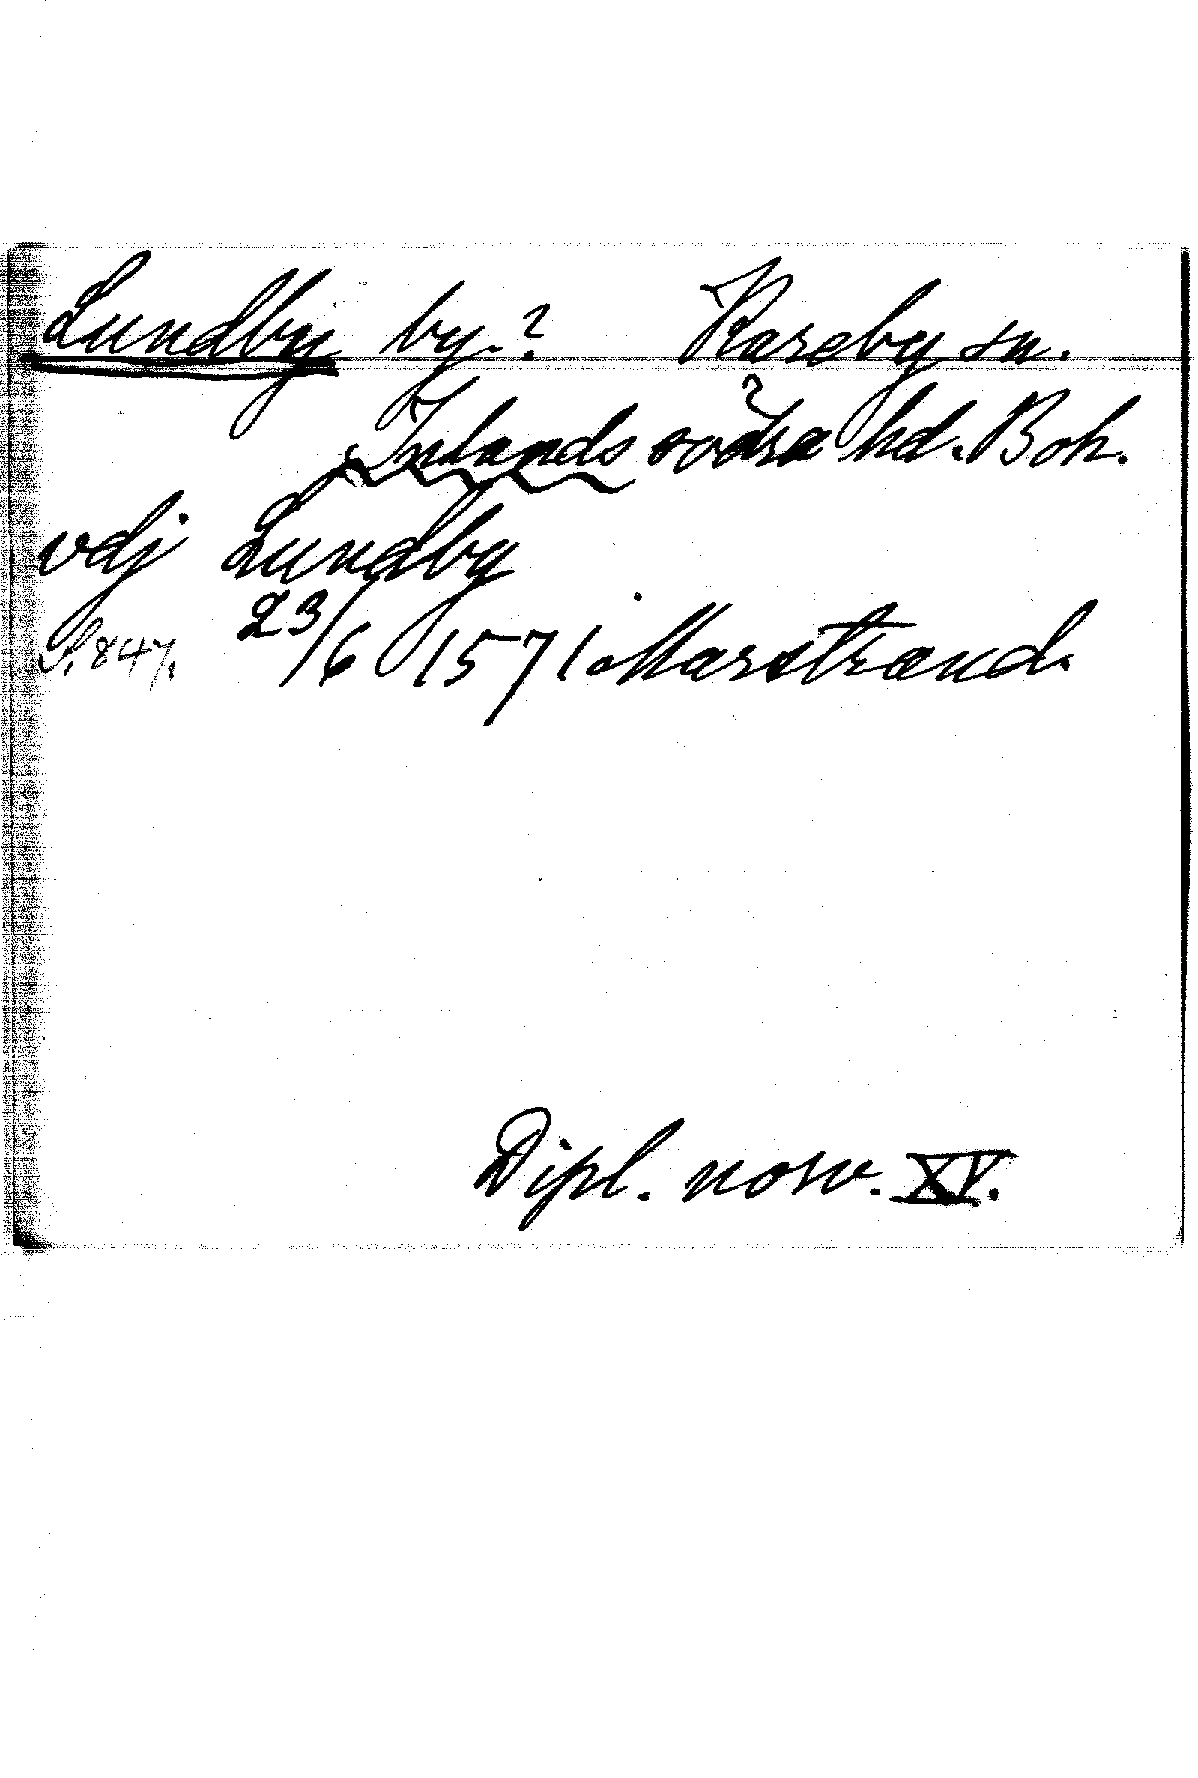 Lundby by.? Kareby sn.
Inlands södra hd. Boh.
vdj Lundby
S. 847. 23/6 1571 Marstrand.
Dipl. norv. XV.